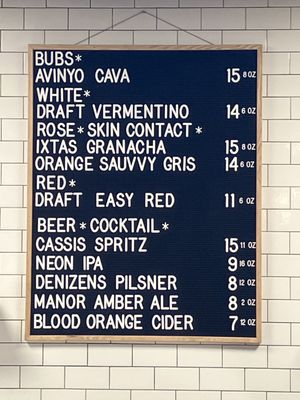 BUBS*
AVINYO CAVA 15 8 OZ
WHITE*
DRAFT VERMENTINO 14 6 OZ
ROSE* SKIN CONTACT*
IXTAS GRANACHA 15 8 OZ
ORANGE SAUVVY GRIS 14 6 OZ
RED*
DRAFT EASY RED 11 6 OZ
BEER * COCKTAIL *
CASSIS SPRITZ 15 11 OZ
NEON IPA 9 16 OZ
DENIZENS PILSNER 8 12 OZ
MANOR AMBER ALE 8 2 OZ
BLOOD ORANGE CIDER 7 12 OZ